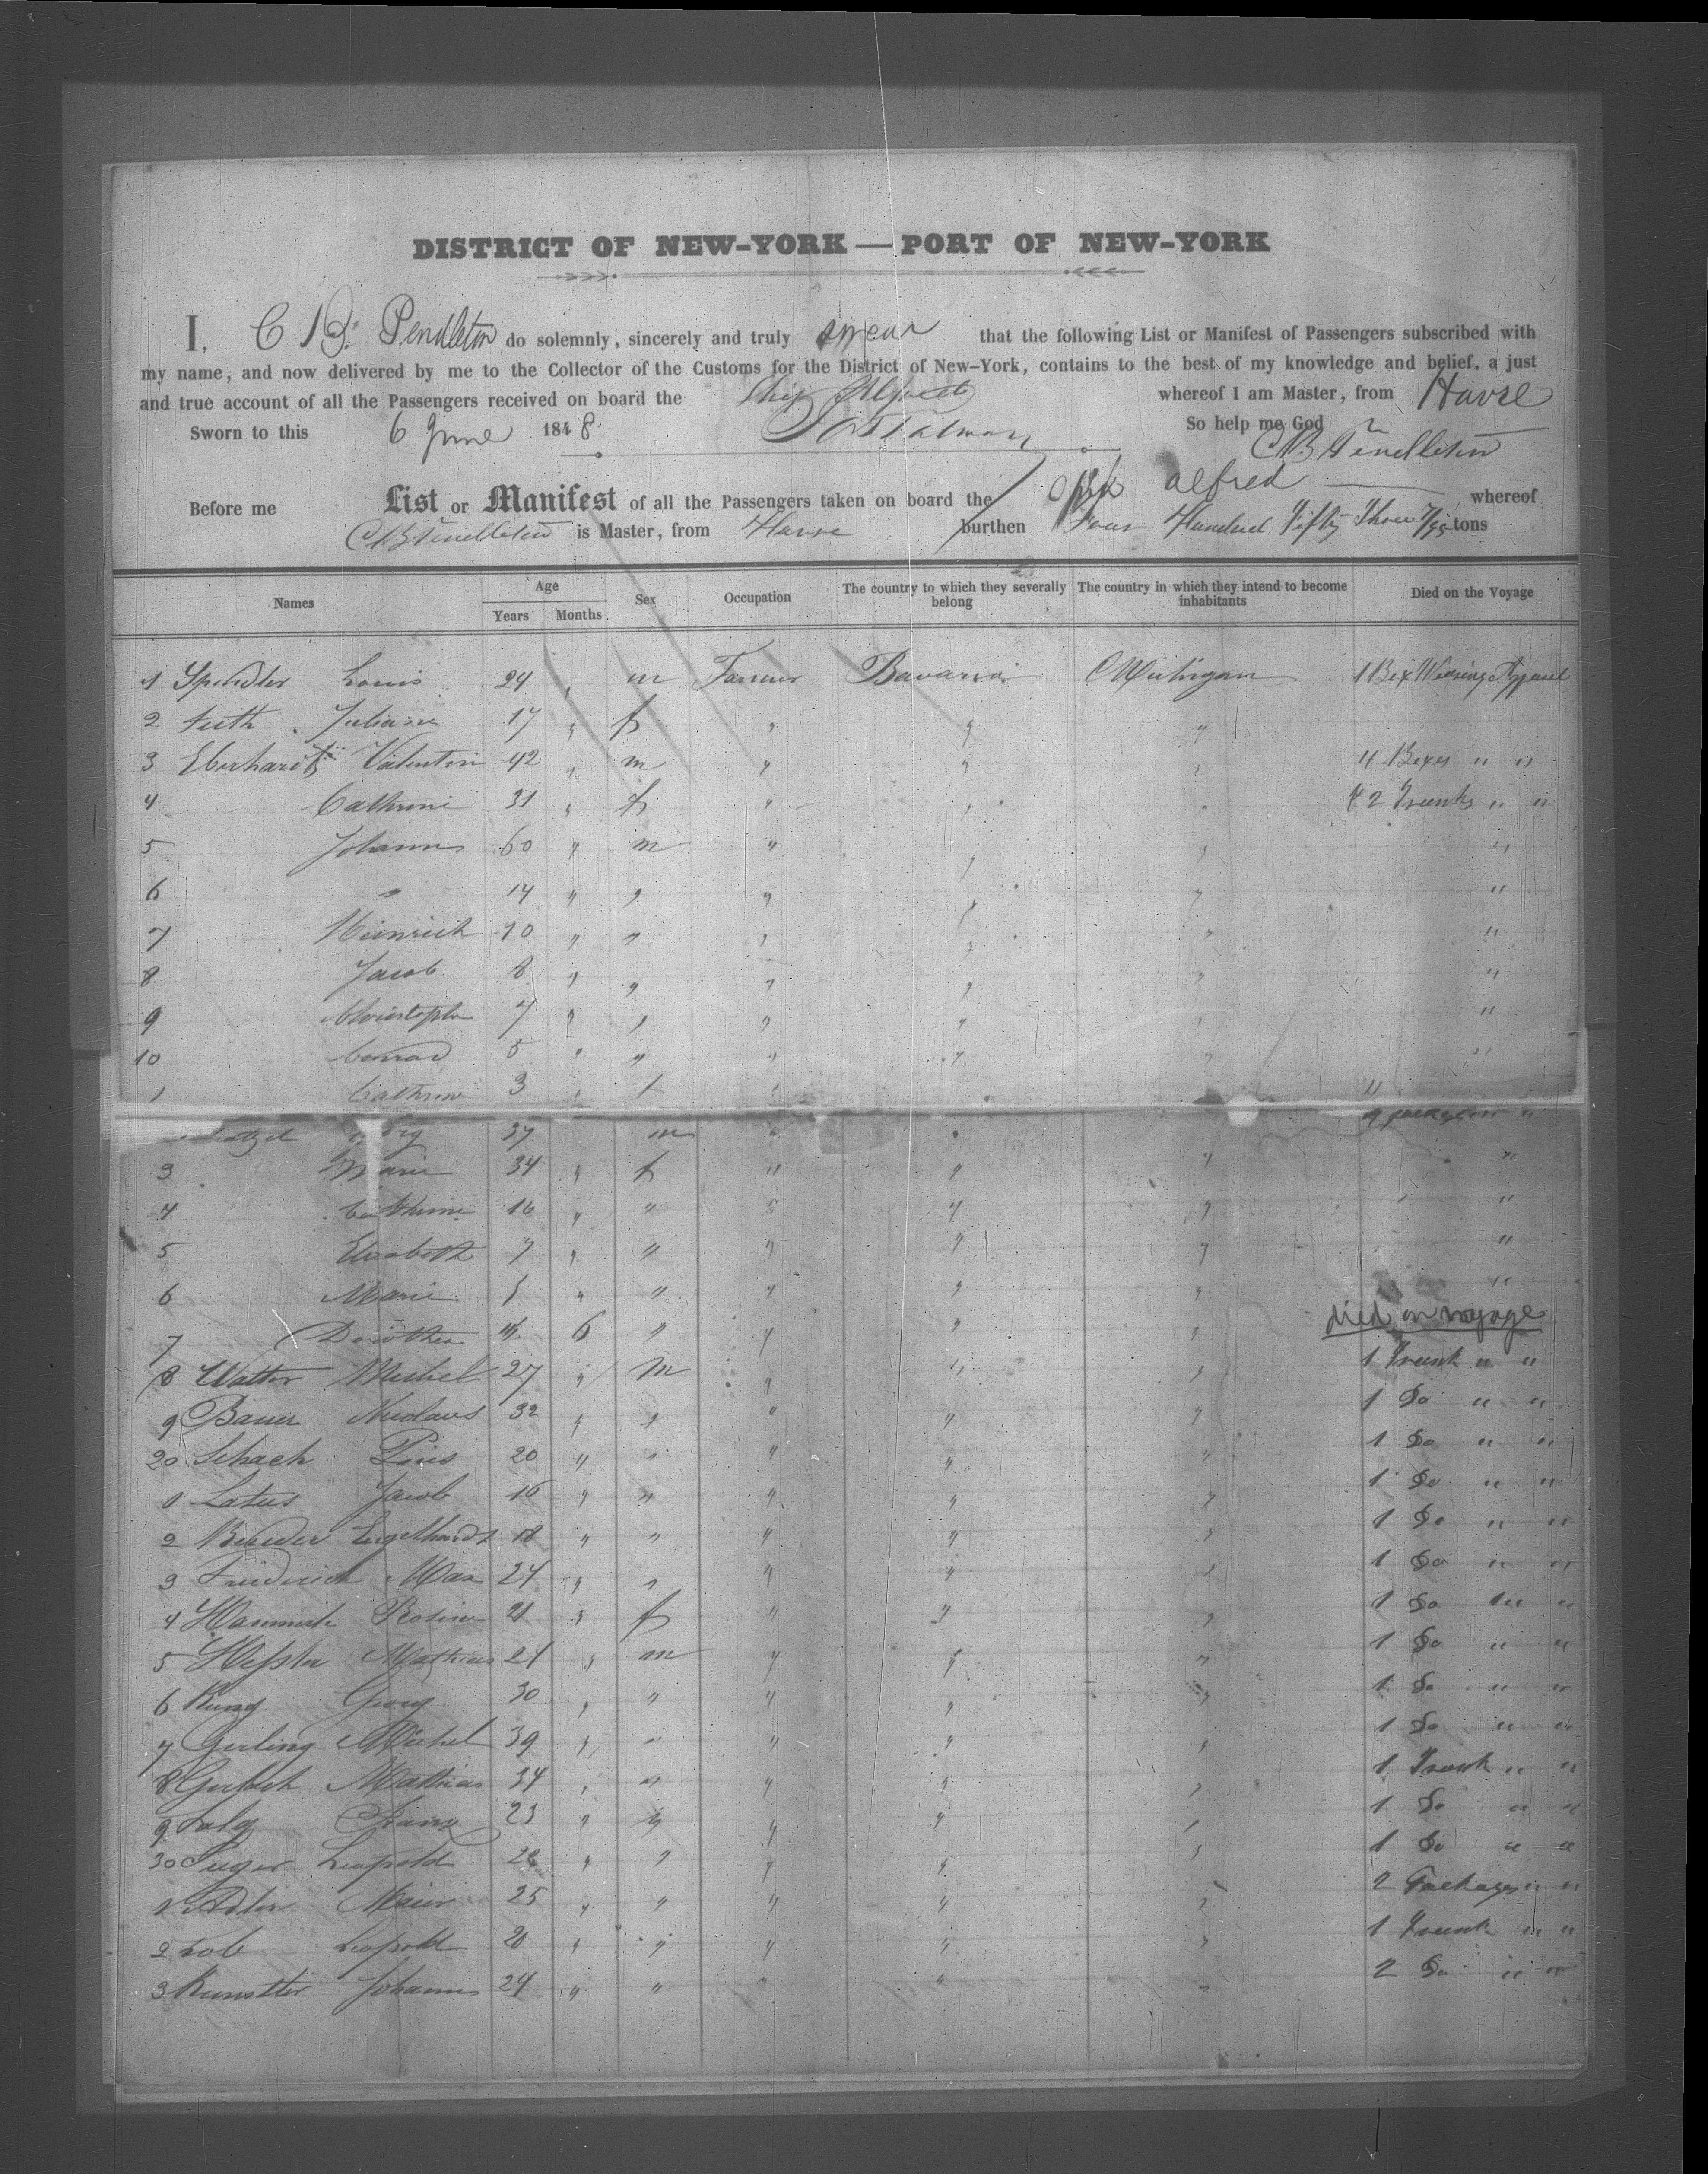 DISTRICT OF NEW-YORK — PORT OF NEW-YORK
I, C B Pendleton do solemnly, sincerely and truly swear that the following List or Manifest of Passengers subscribed with
my name, and now delivered by me to the Collector of the Customs for the District of New-York, contains to the best of my knowledge and belief, a just
and true account of all the Passengers received on board the Ship Alfred whereof I am Master, from Havre
Sworn to this 6 June 1848 So help me God
C B Pendleton
Before me List or Manifest of all the Passengers taken on board the Ship Alfred whereof
C B Pendleton is Master, from Havre burthen Four Hundred Fifty Three 7/95 tons
Names Age Years Months Sex Occupation The country to which they severally belong The country in which they intend to become inhabitants Died on the Voyage
1 Spindler Louis 24 " m Farmer Bavaria Michigan 1 Box Wearing Apparel
2 Juliane 17 " f " " "
3 Eberhardt Valentin 42 " m " " " 4 Boxes " "
4 Cathrine 31 " f " " " & 2 Trunks " "
5 Johannes 60 " m " " " "
6 " 14 " " " " " "
7 Heinrich 10 " " " " " "
8 Jacob 8 " " " " " "
9 Christoph 7 " " " " " "
10 Conrad 5 " " " " " "
1 Cathrine 3 " f " "
37 m " " 9 packages " "
3 Marie 34 " f " " " "
4 Cathrine 16 " " " " " "
5 Elisabeth 7 " " " " " "
6 Marie " " " " " "
7 Dorothea 6 " " " " died on voyage
8 Walter Michel 27 " m " " " 1 Trunk " "
9 Bauer Nicolaus 32 " " " " " 1 Do " "
20 Schach Pius 20 " " " " " 1 Do " "
1 Latus Jacob 16 " " " " " 1 Do " "
2 Engelhardt 18 " " " " " 1 Do " "
3 Friederich Max 24 " " " " " 1 Do " "
4 Rosine 21 " f " " " 1 Do " "
5 Mathias 21 " m " " " 1 Do " "
6 Kung Georg 30 " " " " " 1 Do " "
7 Gerling Michel 39 " " " " " 1 Do " "
8 Mathias 34 " " " " " 1 Trunk " "
9 Franz 23 " " " " " 1 Do " "
30 Leopold " " " " " 1 Do " "
1 Adler Maier 25 " " " " " 2 Packages " "
2 Lob Leopold 20 " " " " " 1 Trunk " "
3 Kunstler Johannes 24 " " " " " 2 Do " "